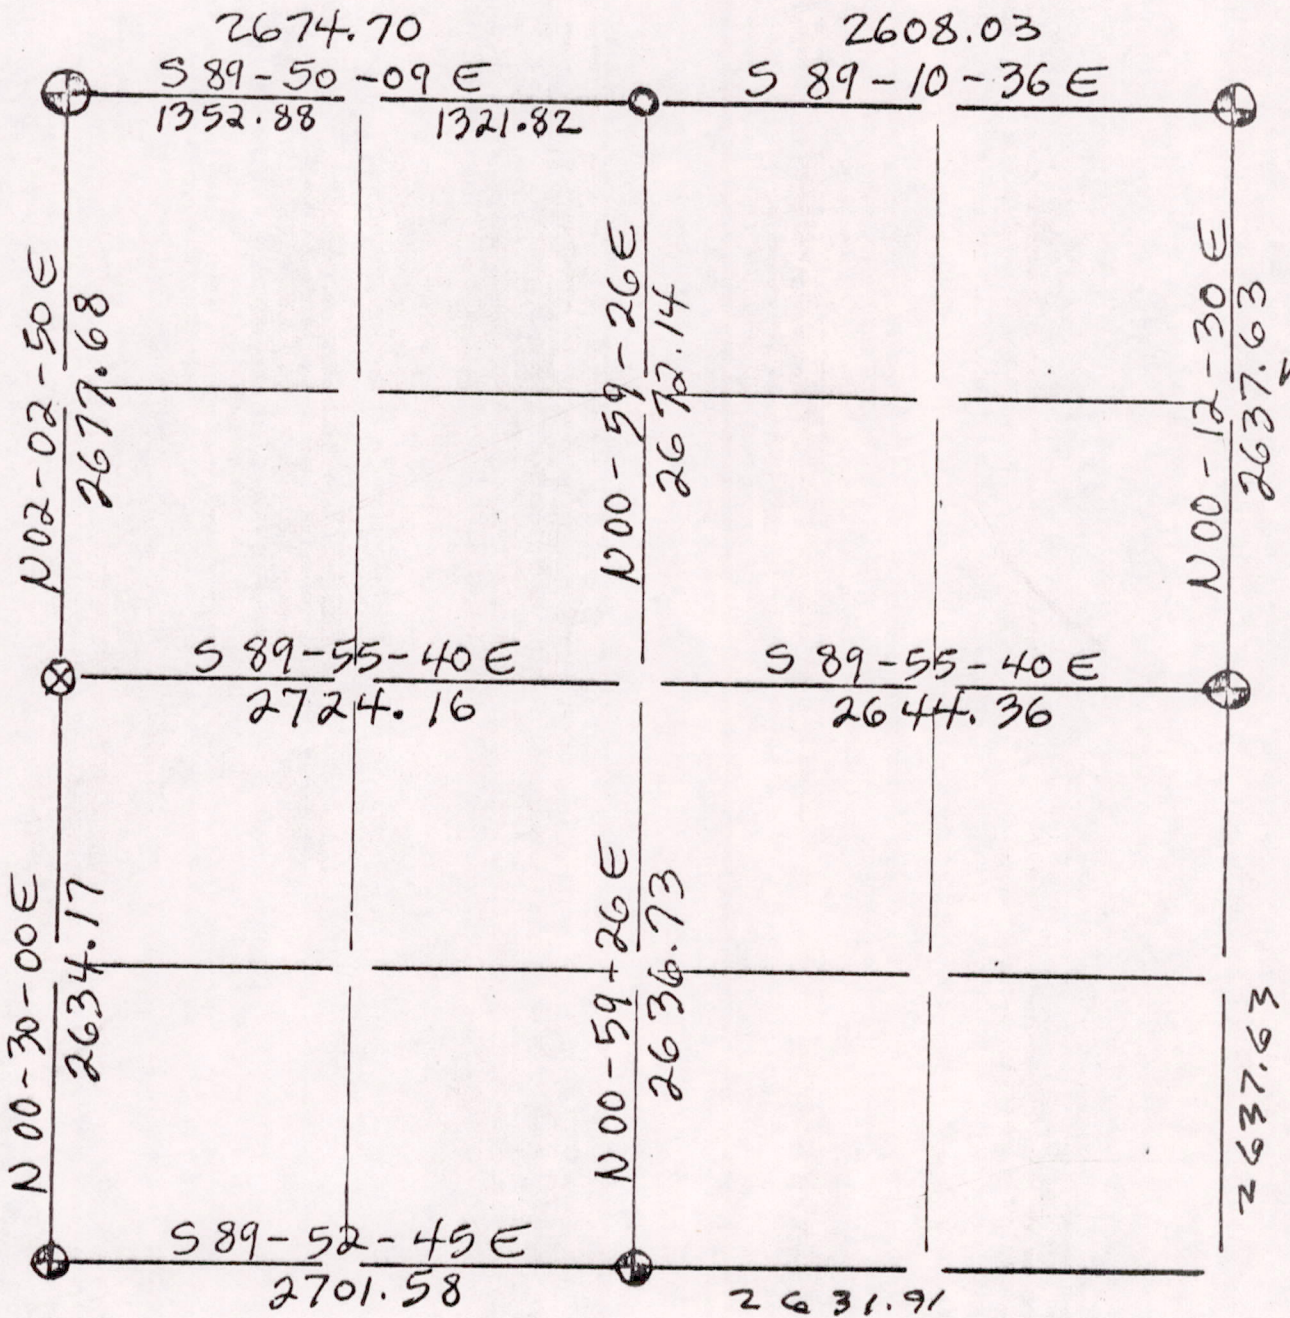 2674.70
2608.03
S 89-50-09 E
S 89-10-36 E
1352.88
1321.82
N02-02-50E
2677.68
N00-59-26E
2672.14
N00-12-30E
2637.63
S 89-55-40 E
2724.16
S 89-55-40 E
2644.36
N 00-30-00E
2634.17
N 00-59-26E
2636.73
2637.63
S 89-52-45 E
2701.58
2631.91